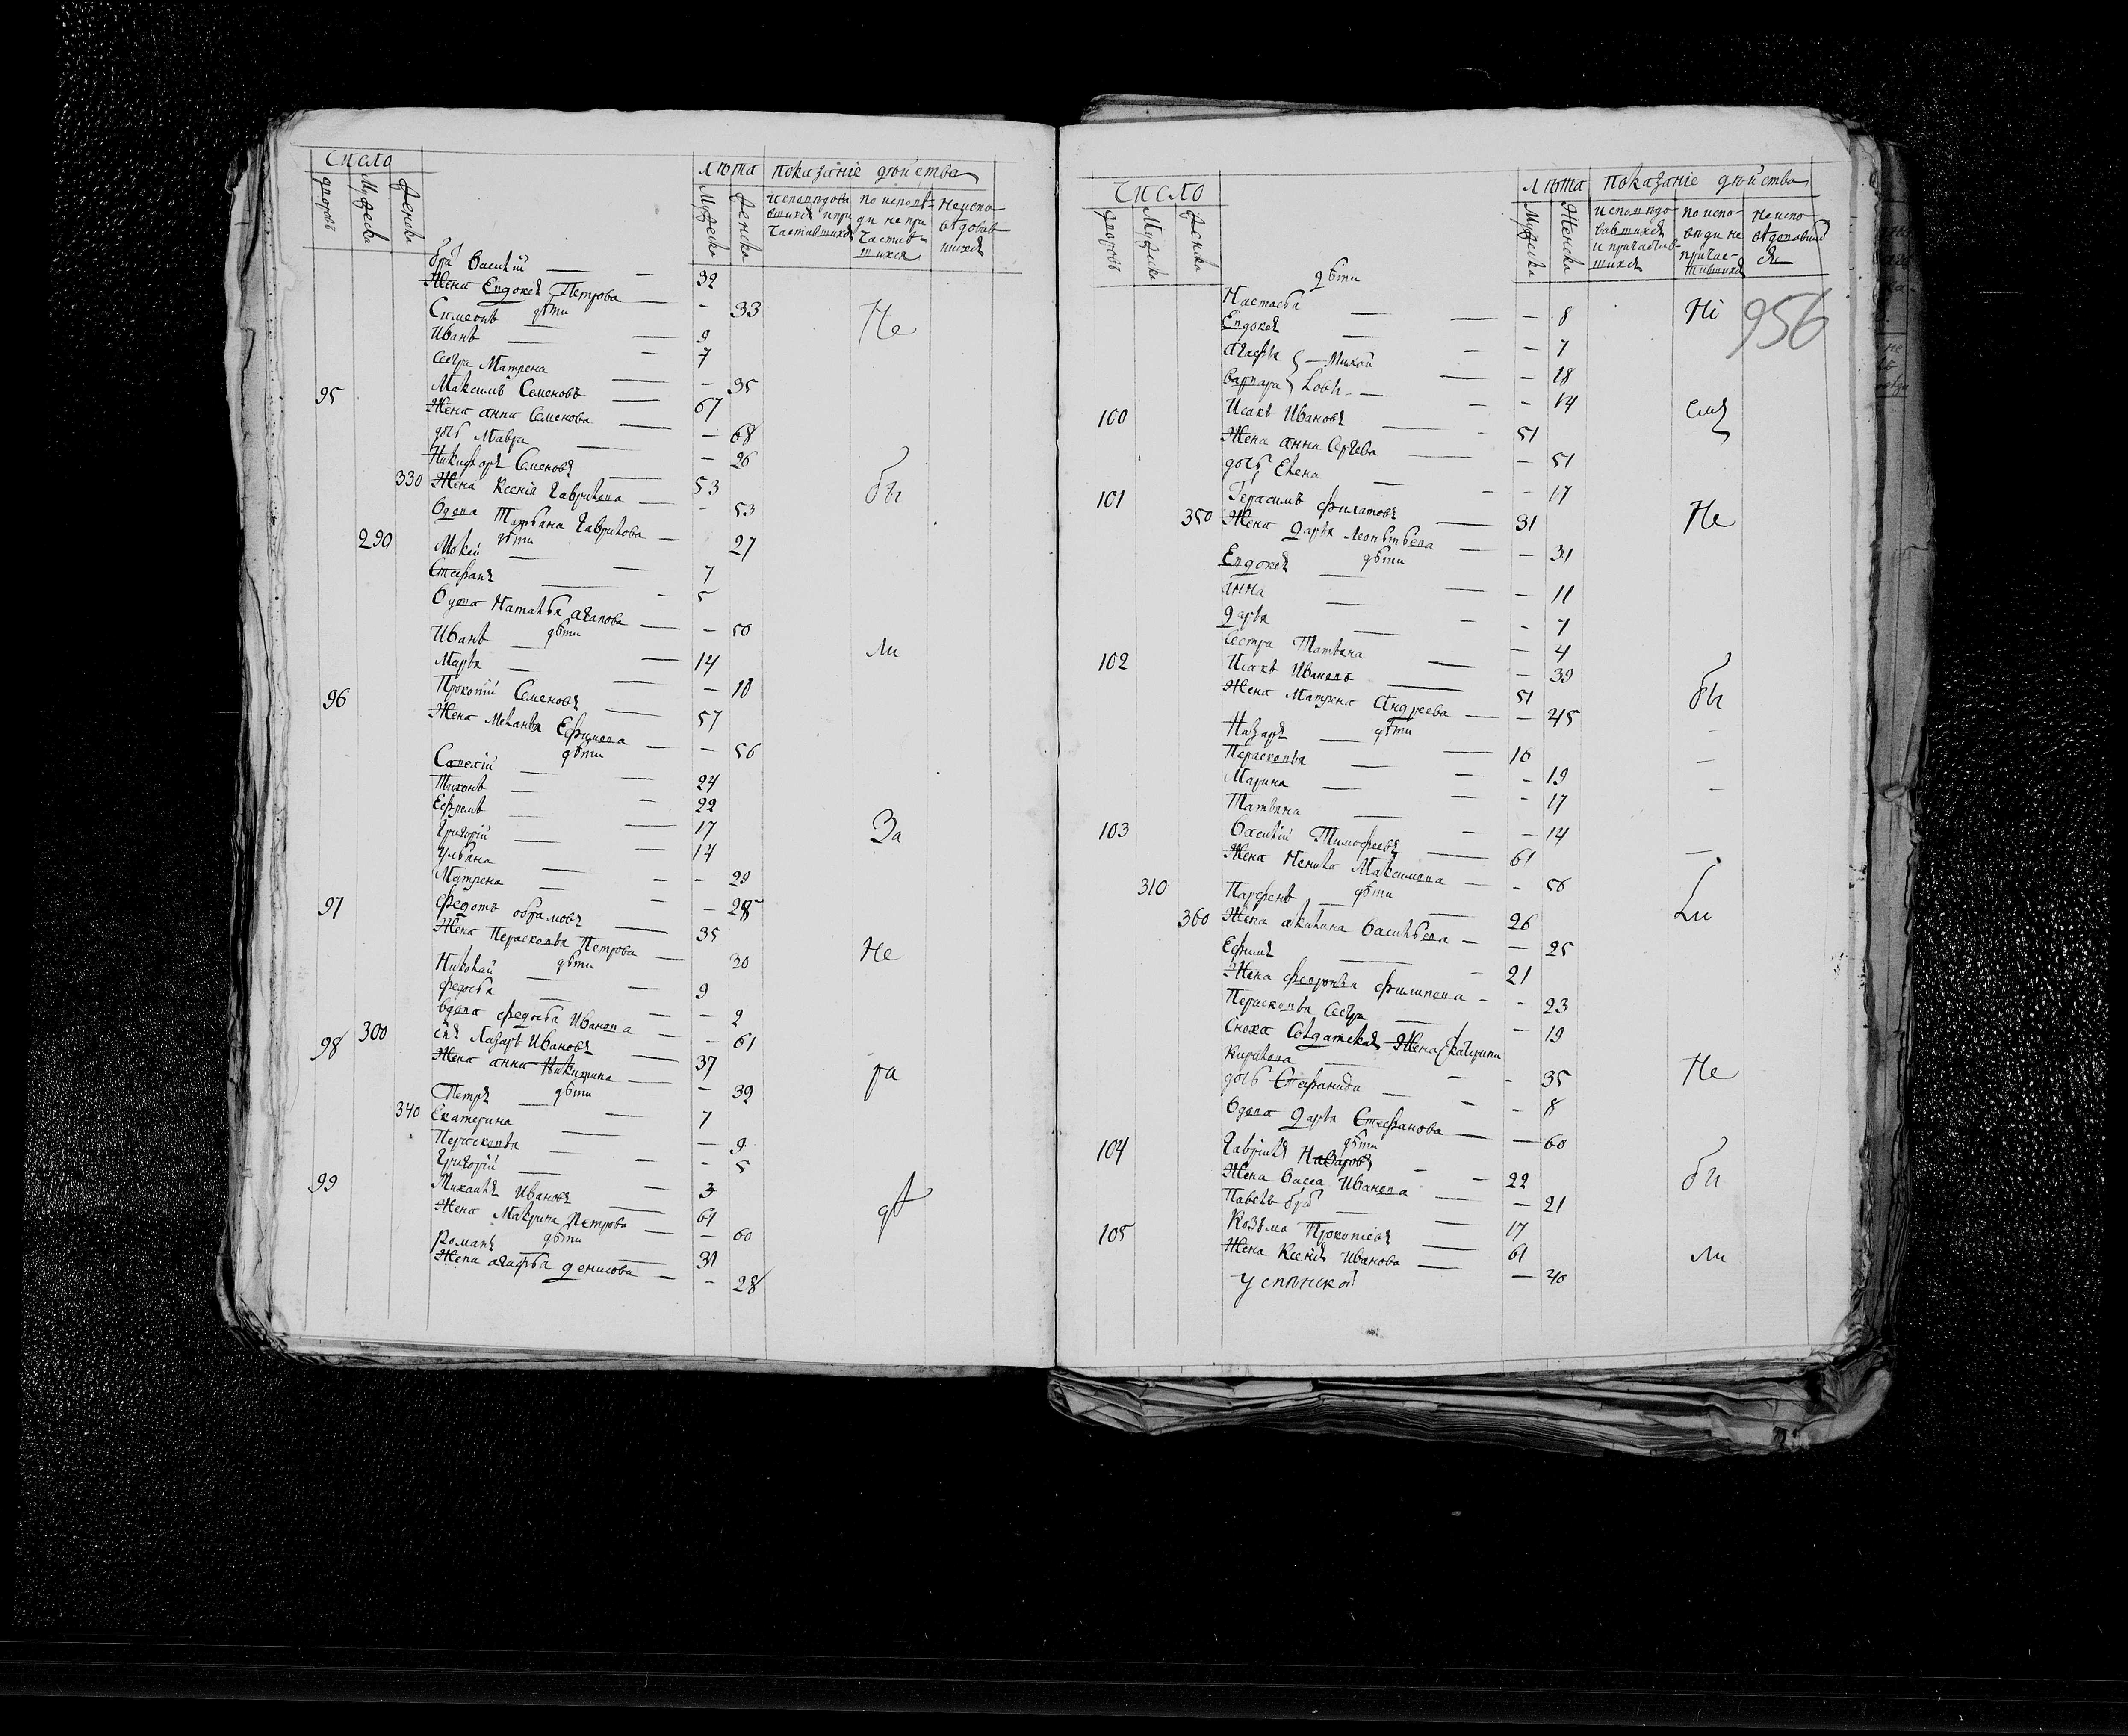 Число
лѣта показанiе дѣйства
дворовъ Мужеска Женска
Мужеска Женска
исповѣдовавшихся и причастившихся
по исповѣди не причастившихся
не исповѣдовавшихся
бра Василiй — 32
Жена Евдокея Петрова — 33
дѣти
Симеонъ — 9
Не
Иванъ — 7
сестра Матрена — 35
95 Максимъ Семеновъ — 67
Жена анна Семенова — 68
дочь Мавра — 26
Никифоръ Семеновъ — 53
330 Жена Ксенiя Гаврилова — 53
бы
вдова Гаврилова — 27
дѣти
290 Мокей — 7
Стефанъ — 5
вдова Наталья агапова — 50
дѣти
Иванъ — 14
ли
Марья — 10
96 Прокопiй Семеновъ — 57
Жена Меланья Ефимова — 56
дѣти
Савелiй — 24
Тихонъ — 22
Ефремъ — 17
За
Григорiй — 14
Ульяна — 29
Матрена — 28
97 Федотъ обрамовъ — 35
Жена Перасковья Петрова — 30
Не
дѣти
Николай — 9
Федосья — 2
вдова Федосья Иванова — 61
98 300 сiя Лазарь Ивановъ — 37
Жена анна Никитина — 39
ра
дѣти
Петръ — 7
340 Екатерина — 9
Перасковья — 5
Григорiй — 3
99 Михаилъ Ивановъ — 61
Жена Маврина Петрова — 60
дѣ
дѣти
Романъ — 31
Жена агафья денисова — 28
Число
лѣта показанiе дѣйства
дворовъ Мужеска Женска
Мужеска Женска
исповѣдовавшихся и причастившихся
по исповѣди не причастившихся
не исповѣдовавшихся
956
дѣти
Настасья — 8
Нi
Евдокея — 7
агафья — Михай 18
варвара ловы — 14
100 Исакъ Ивановъ — 51
Жена анна Сергева — 51
дочь Елена — 17
101 Герасимъ Филатовъ — 31
Не
350 Жена дарья Леонтьева — 31
дѣти
Евдокея — 11
анна — 7
дарья — 4
сестра Татьяна — 39
102 Исакъ Ивановъ — 51
бы
Жена Матрена Андреева — 45
дѣти
Назаръ — 10
Перасковья — 19
Марина — 17
Татьяна — 14
103 Василiй Тимофеевъ — 61
Жена Ненила Максимова — 56
дѣти
310 Парфенъ — 26
ли
360 Жена акилина Васильева — 25
Ефимъ — 21
Жена Февронья Филипова — 23
Перасковья сестра — 19
Сноха Солдатская Жена Катерина
Кирилова — 35
Не
дочь Стефанида — 8
вдова дарья Стефанова — 60
дѣти
104 Гаврiилъ Назаровъ — 22
Жена Васса Иванова — 21
бы
Павелъ бра — 17
105 Козьма Прокопiевъ — 61
Жена Ксенiя Иванова — 40
ли